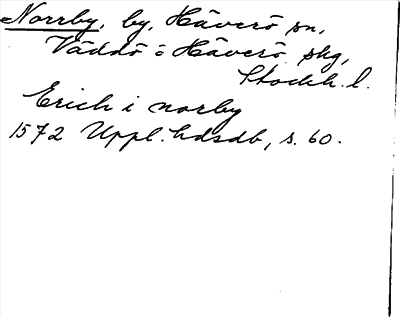 Norrby, by, Häverö sn,
Väddö o Häverö skg,
Stockh. l.
Erich i norby
1572 Uppl. hdsdb, s. 60.